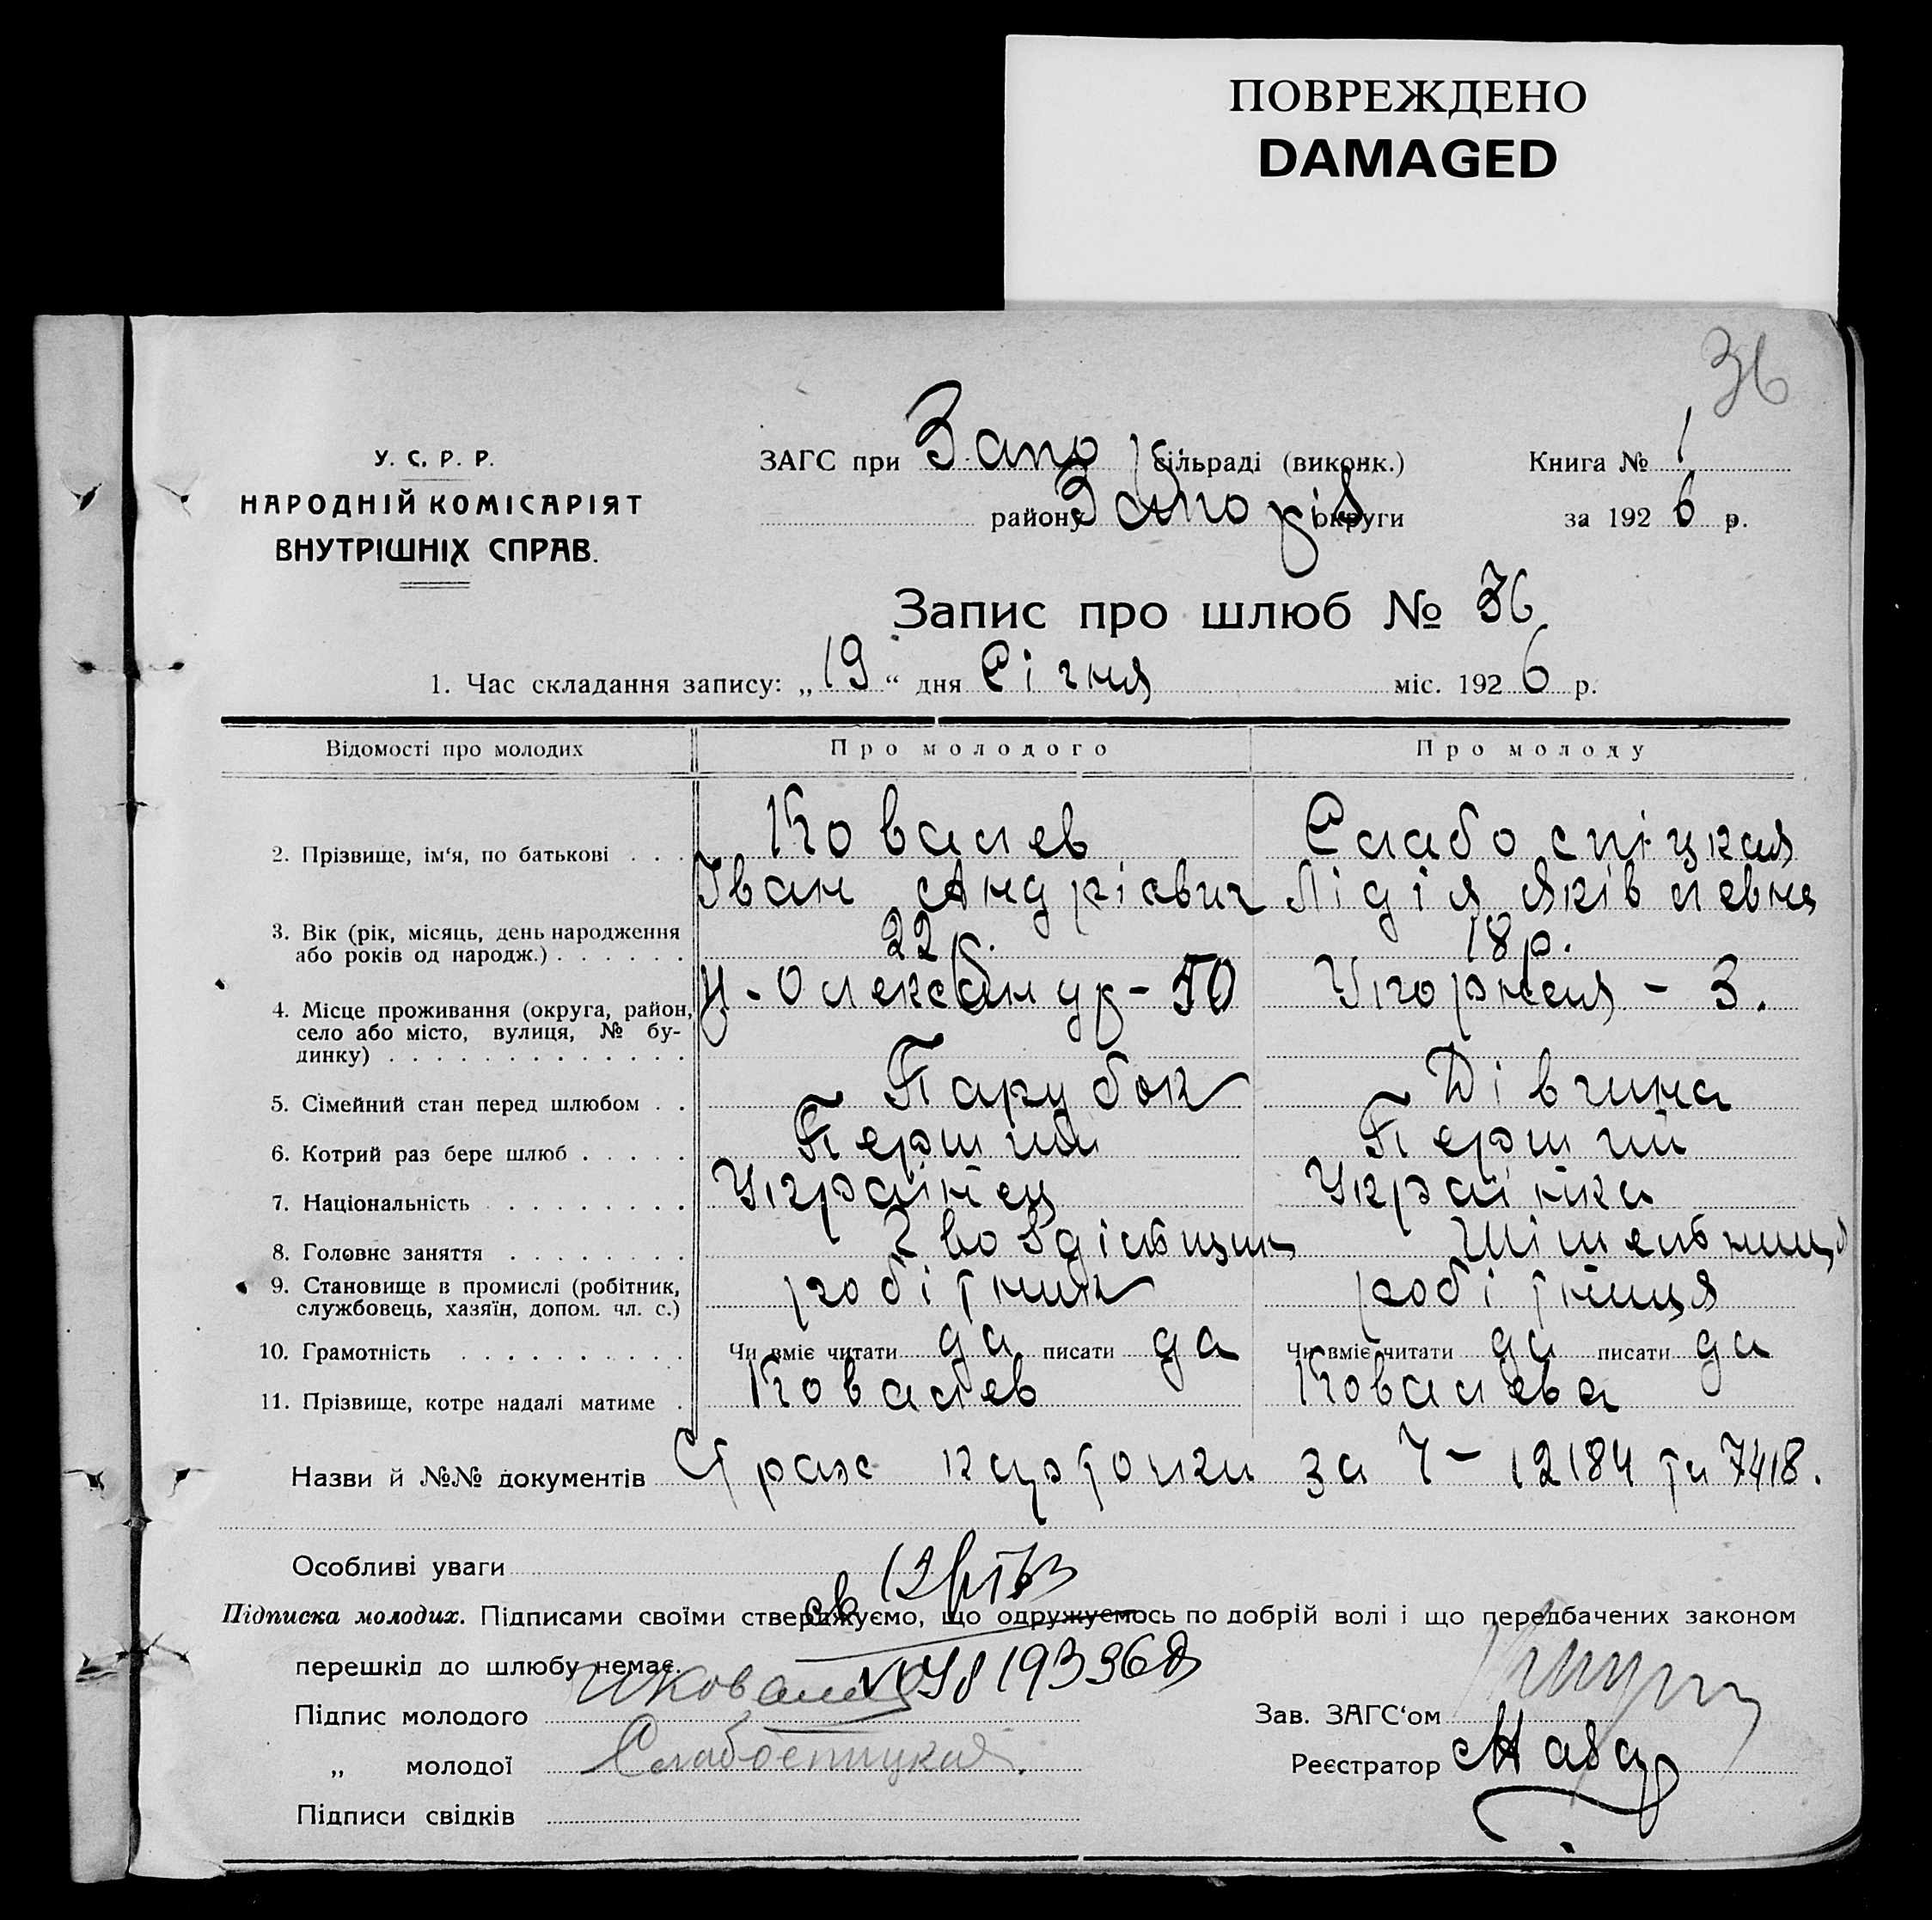 ПОВРЕЖДЕНО
DAMAGED
36
У. С. Р. Р.
НАРОДНІЙ КОМІСАРІЯТ
ВНУТРІШНІХ СПРАВ.
ЗАГС при Запор. сільраді (виконк.)
району Запоріз округи
Книга № 1
за 1926 р.
Запис про шлюб № 36
1. Час складання запису: „19“ дня Січня міс. 1926 р.
Відомості про молодих Про молодого Про молоду
2. Прізвище, ім‘я, по батькові . . . Ковалев Слабоспіцкая
Іван Андрієвич Лідія Яківлевна
3. Вік (рік, місяць, день народження
або років од народж.) . . . . . . 22 р. 18 р.
4. Місце проживання (округа, район,
село або місто, вулиця, № бу-
динку) . . . . . . . . . . . . . Н.-Олександр - 50 Угорная - 3.
5. Сімейний стан перед шлюбом . . Парубок Дівчина
6. Котрий раз бере шлюб . . . . . Перший Перший
7. Національність . . . . . . . . . Українец Українка
8. Головне заняття . . . . . . . .
9. Становище в промислі (робітник,
службовець, хазяїн, допом. чл. с.) робітник робітниця
10. Грамотність . . . . . . . . . . Чи вміє читати да писати да Чи вміє читати да писати да
11. Прізвище, котре надалі матиме . Ковалев Ковалева
Назви й №№ документів Страх карточки за Ч - 12184 та 7418.
Особливі уваги
Підписка молодих. Підписами своїми стверджуємо, що одружуємось по добрій волі і що передбачених законом
перешкід до шлюбу немає.
Підпис молодого ИКовалев
„ молодої Слабоспицкая.
Підписи свідків
Зав. ЗАГС‘ом
Реєстратор